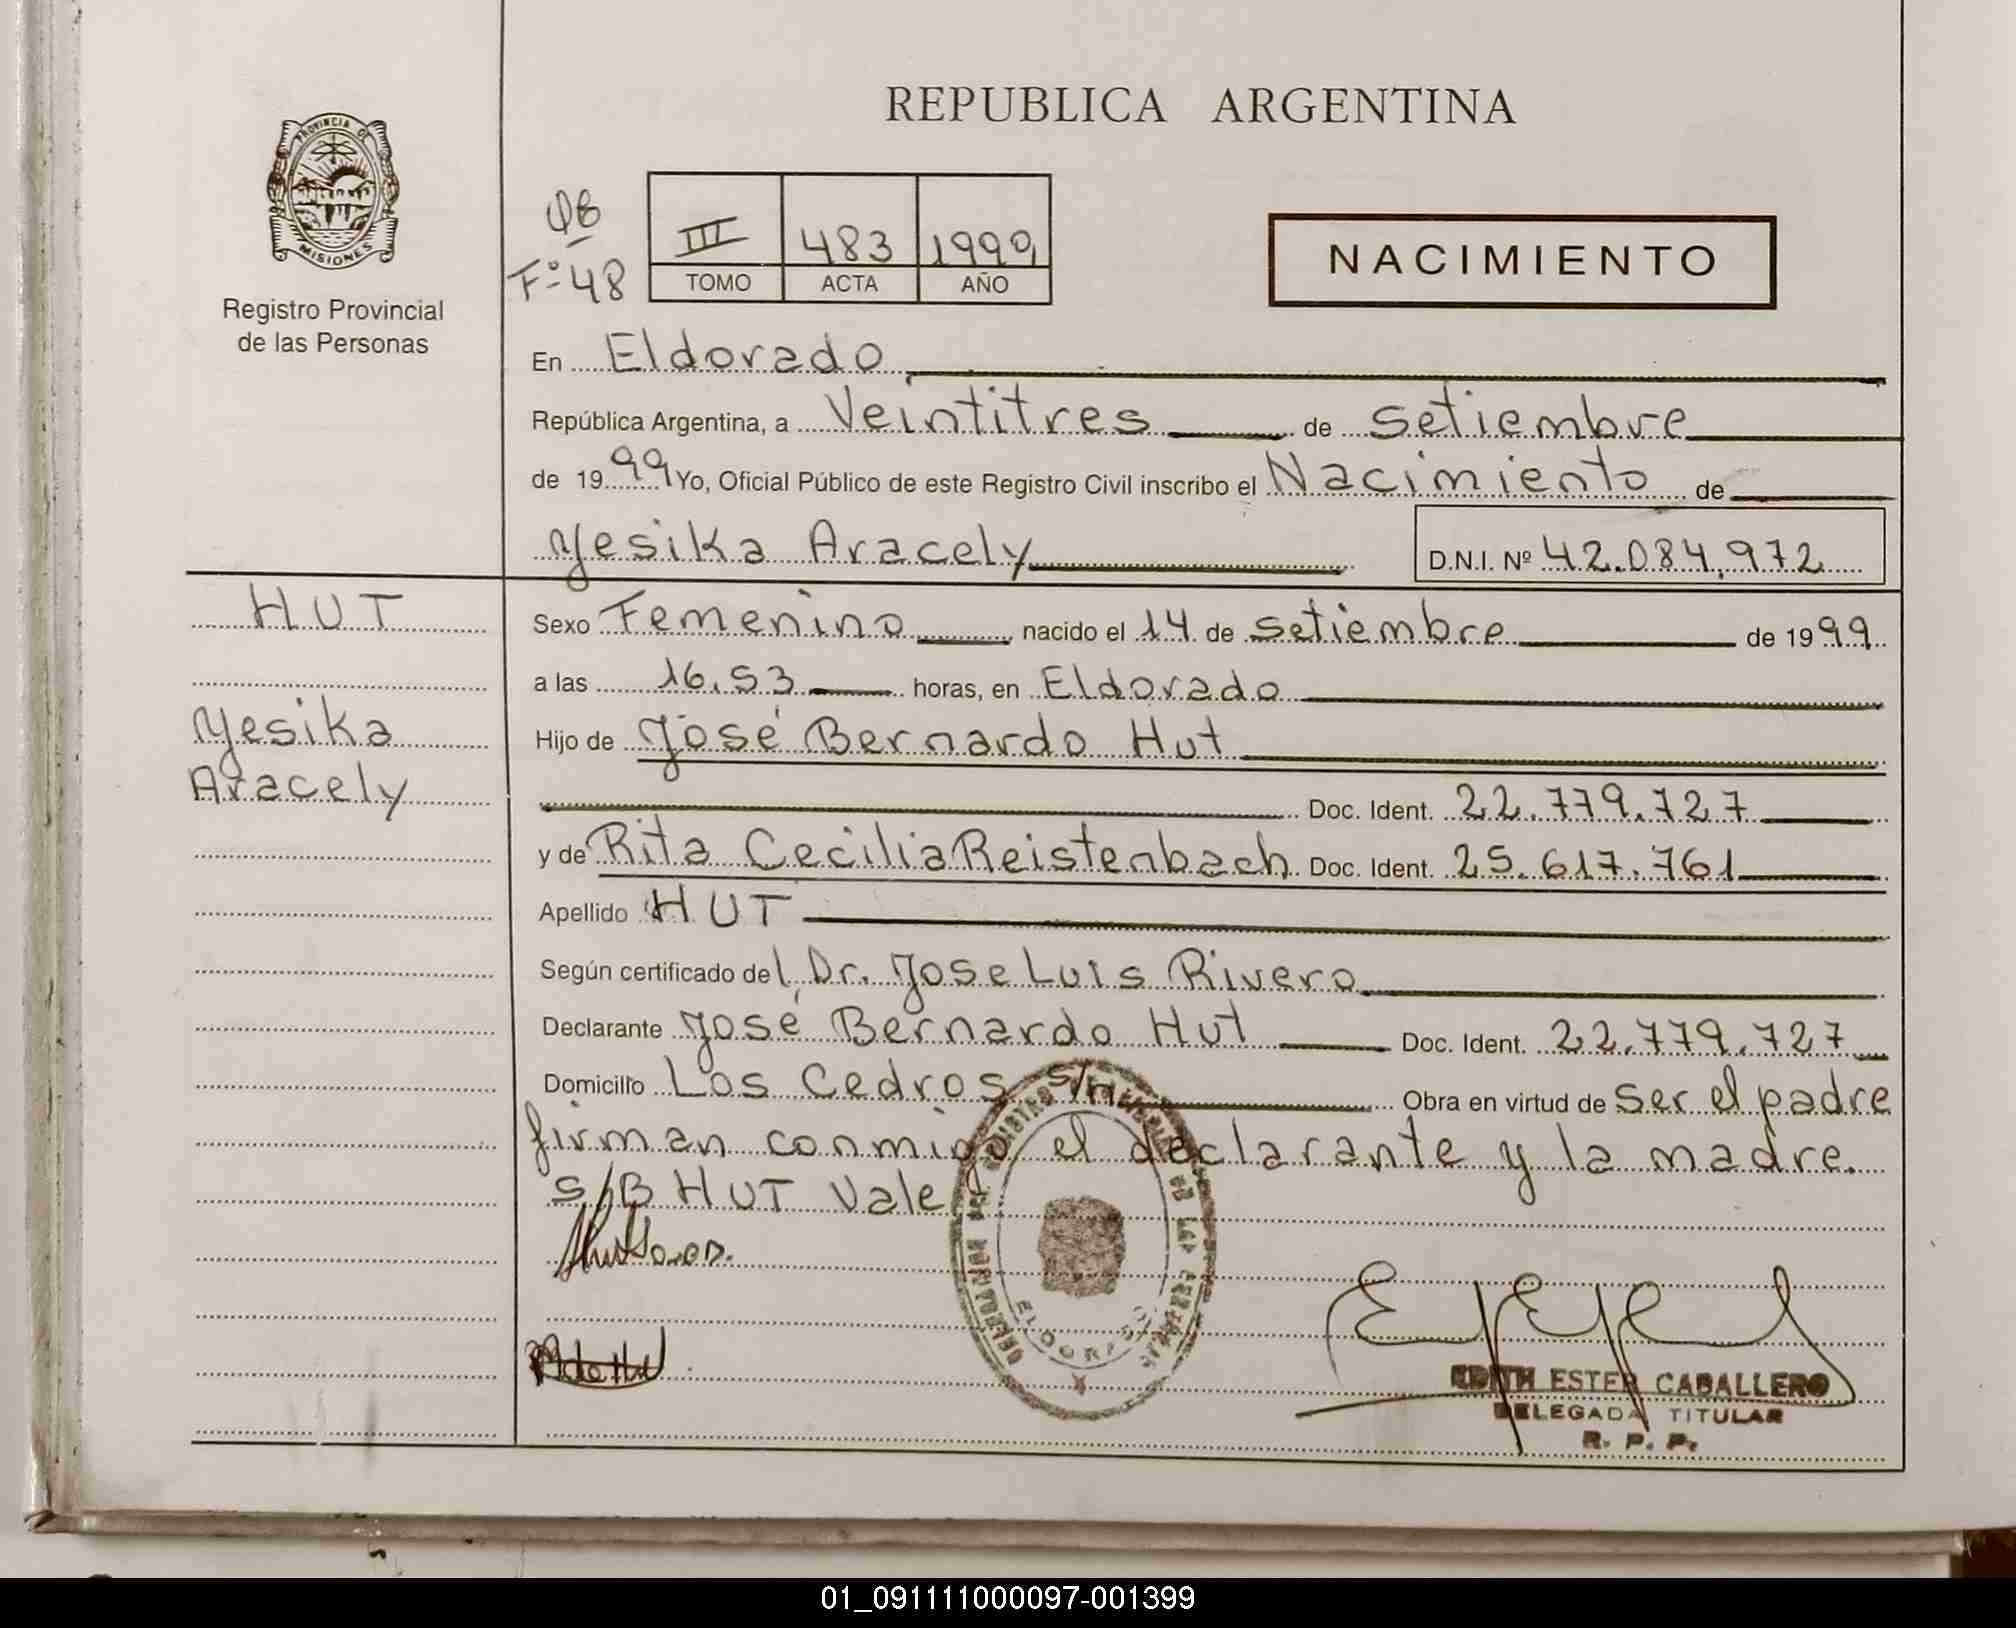 REPUBLICA ARGENTINA
PROVINCIA DE
MISIONES
Registro Provincial
de las Personas
F° 48
III 483 1999
TOMO ACTA AÑO
NACIMIENTO
En Eldorado
República Argentina, a Veintitres de setiembre
de 1999 Yo, Oficial Público de este Registro Civil inscribo el Nacimiento de
Yesika Aracely D.N.I. Nº 42.084.972
HUT
Yesika
Aracely
Sexo Femenino nacido el 14 de setiembre de 1999
a las 16.53 horas, en Eldorado
Hijo de José Bernardo Hut
Doc. Ident. 22.779.727
y de Rita Cecilia Reistenbach Doc. Ident. 25.617.761
Apellido HUT
Según certificado del Dr. Jose Luis Rivero
Declarante José Bernardo Hut Doc. Ident. 22.779.727
Domicilio Los Cedros s/n Obra en virtud de ser el padre
firman conmigo el declarante y la madre.
S/B HUT Vale
ELDORADO
EDITH ESTER CABALLERO
DELEGADA TITULAR
R. P. P.
01_091111000097-001399